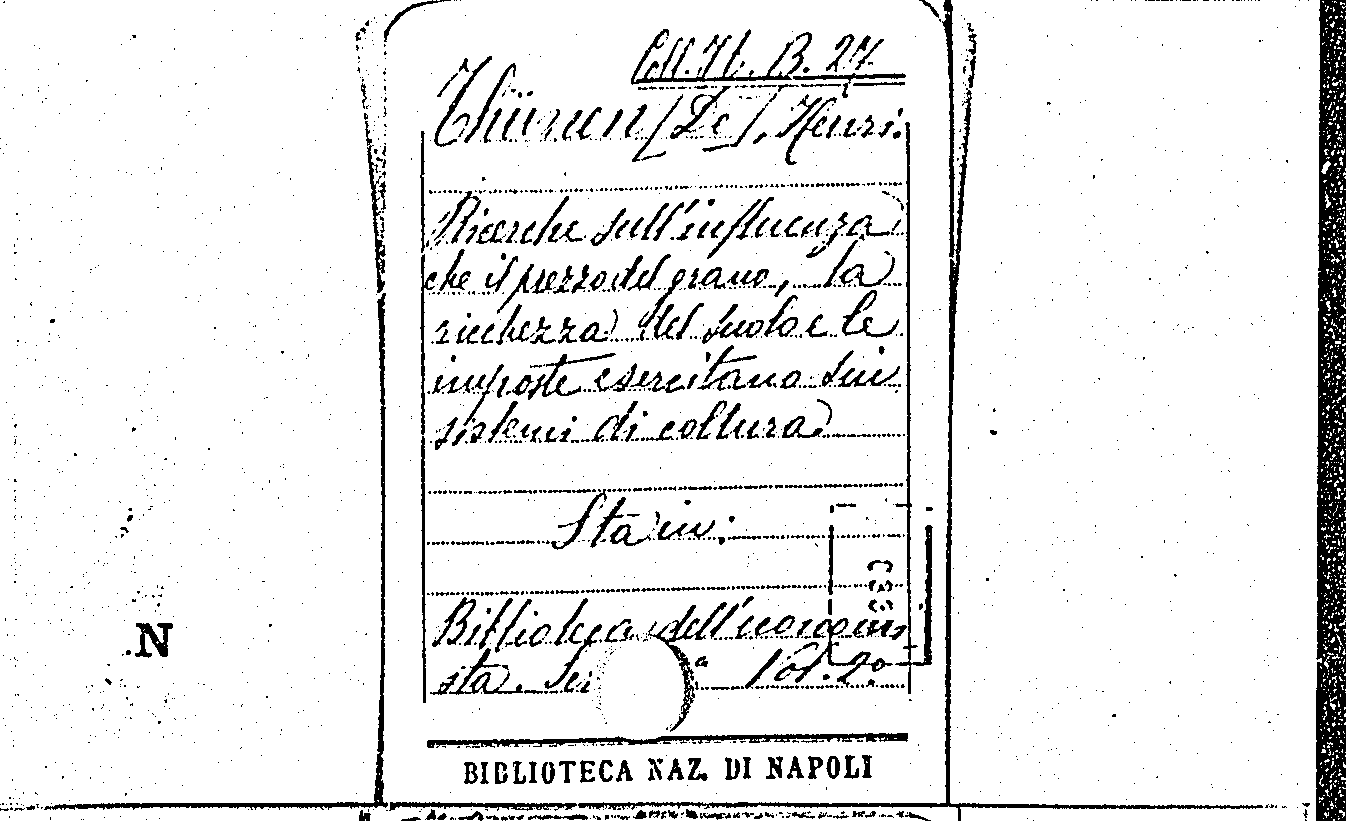 Coll. It. B. 27
Thünen (De), Henri.
Ricerche sull'influenza
che il prezzo del grano, la
ricchezza del suolo e le
imposte esercitano sui
sistemi di coltura
Sta in:
Biblioteca dell'economi
sta. Ser a Vol. 2º
N
BIBLIOTECA NAZ. DI NAPOLI